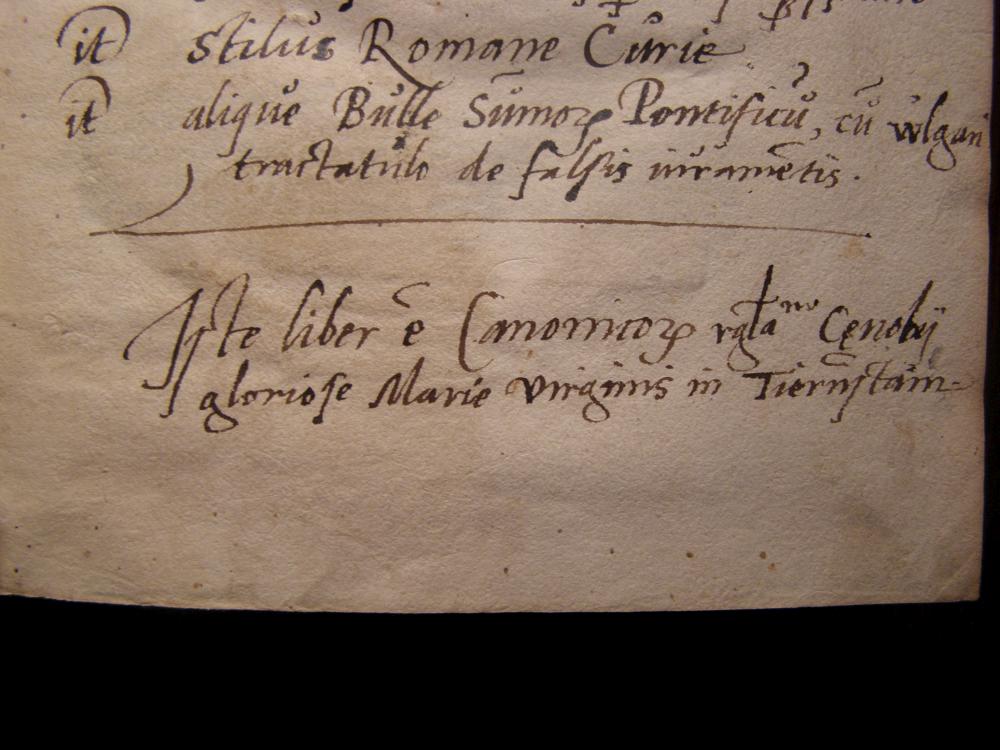 it stilus Romane Curie
it alique Bulle Sūmoꝝ Pontificū, cū vulgari
tractatulo de falsis iuramētis.
Iste liber ē Canonicoꝝ Cenobij
gloriose Marie virginis in Tiernstain-